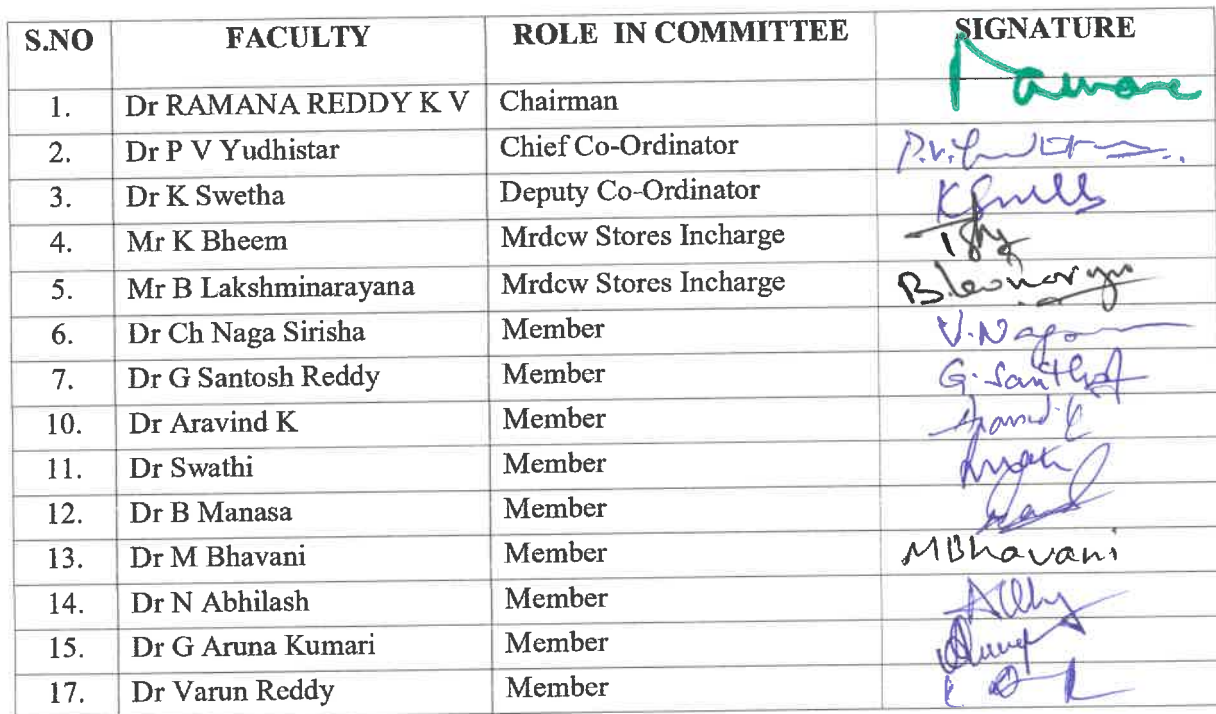 S.NO FACULTY ROLE IN COMMITTEE SIGNATURE
1. Dr RAMANA REDDY K V Chairman
2. Dr P V Yudhistar Chief Co-Ordinator P.V.
3. Dr K Swetha Deputy Co-Ordinator K
4. Mr K Bheem Mrdcw Stores Incharge
5. Mr B Lakshminarayana Mrdcw Stores Incharge
6. Dr Ch Naga Sirisha Member V.Naga
7. Dr G Santosh Reddy Member G.Santhosh
10. Dr Aravind K Member
11. Dr Swathi Member
12. Dr B Manasa Member
13. Dr M Bhavani Member MBhavani
14. Dr N Abhilash Member
15. Dr G Aruna Kumari Member
17. Dr Varun Reddy Member